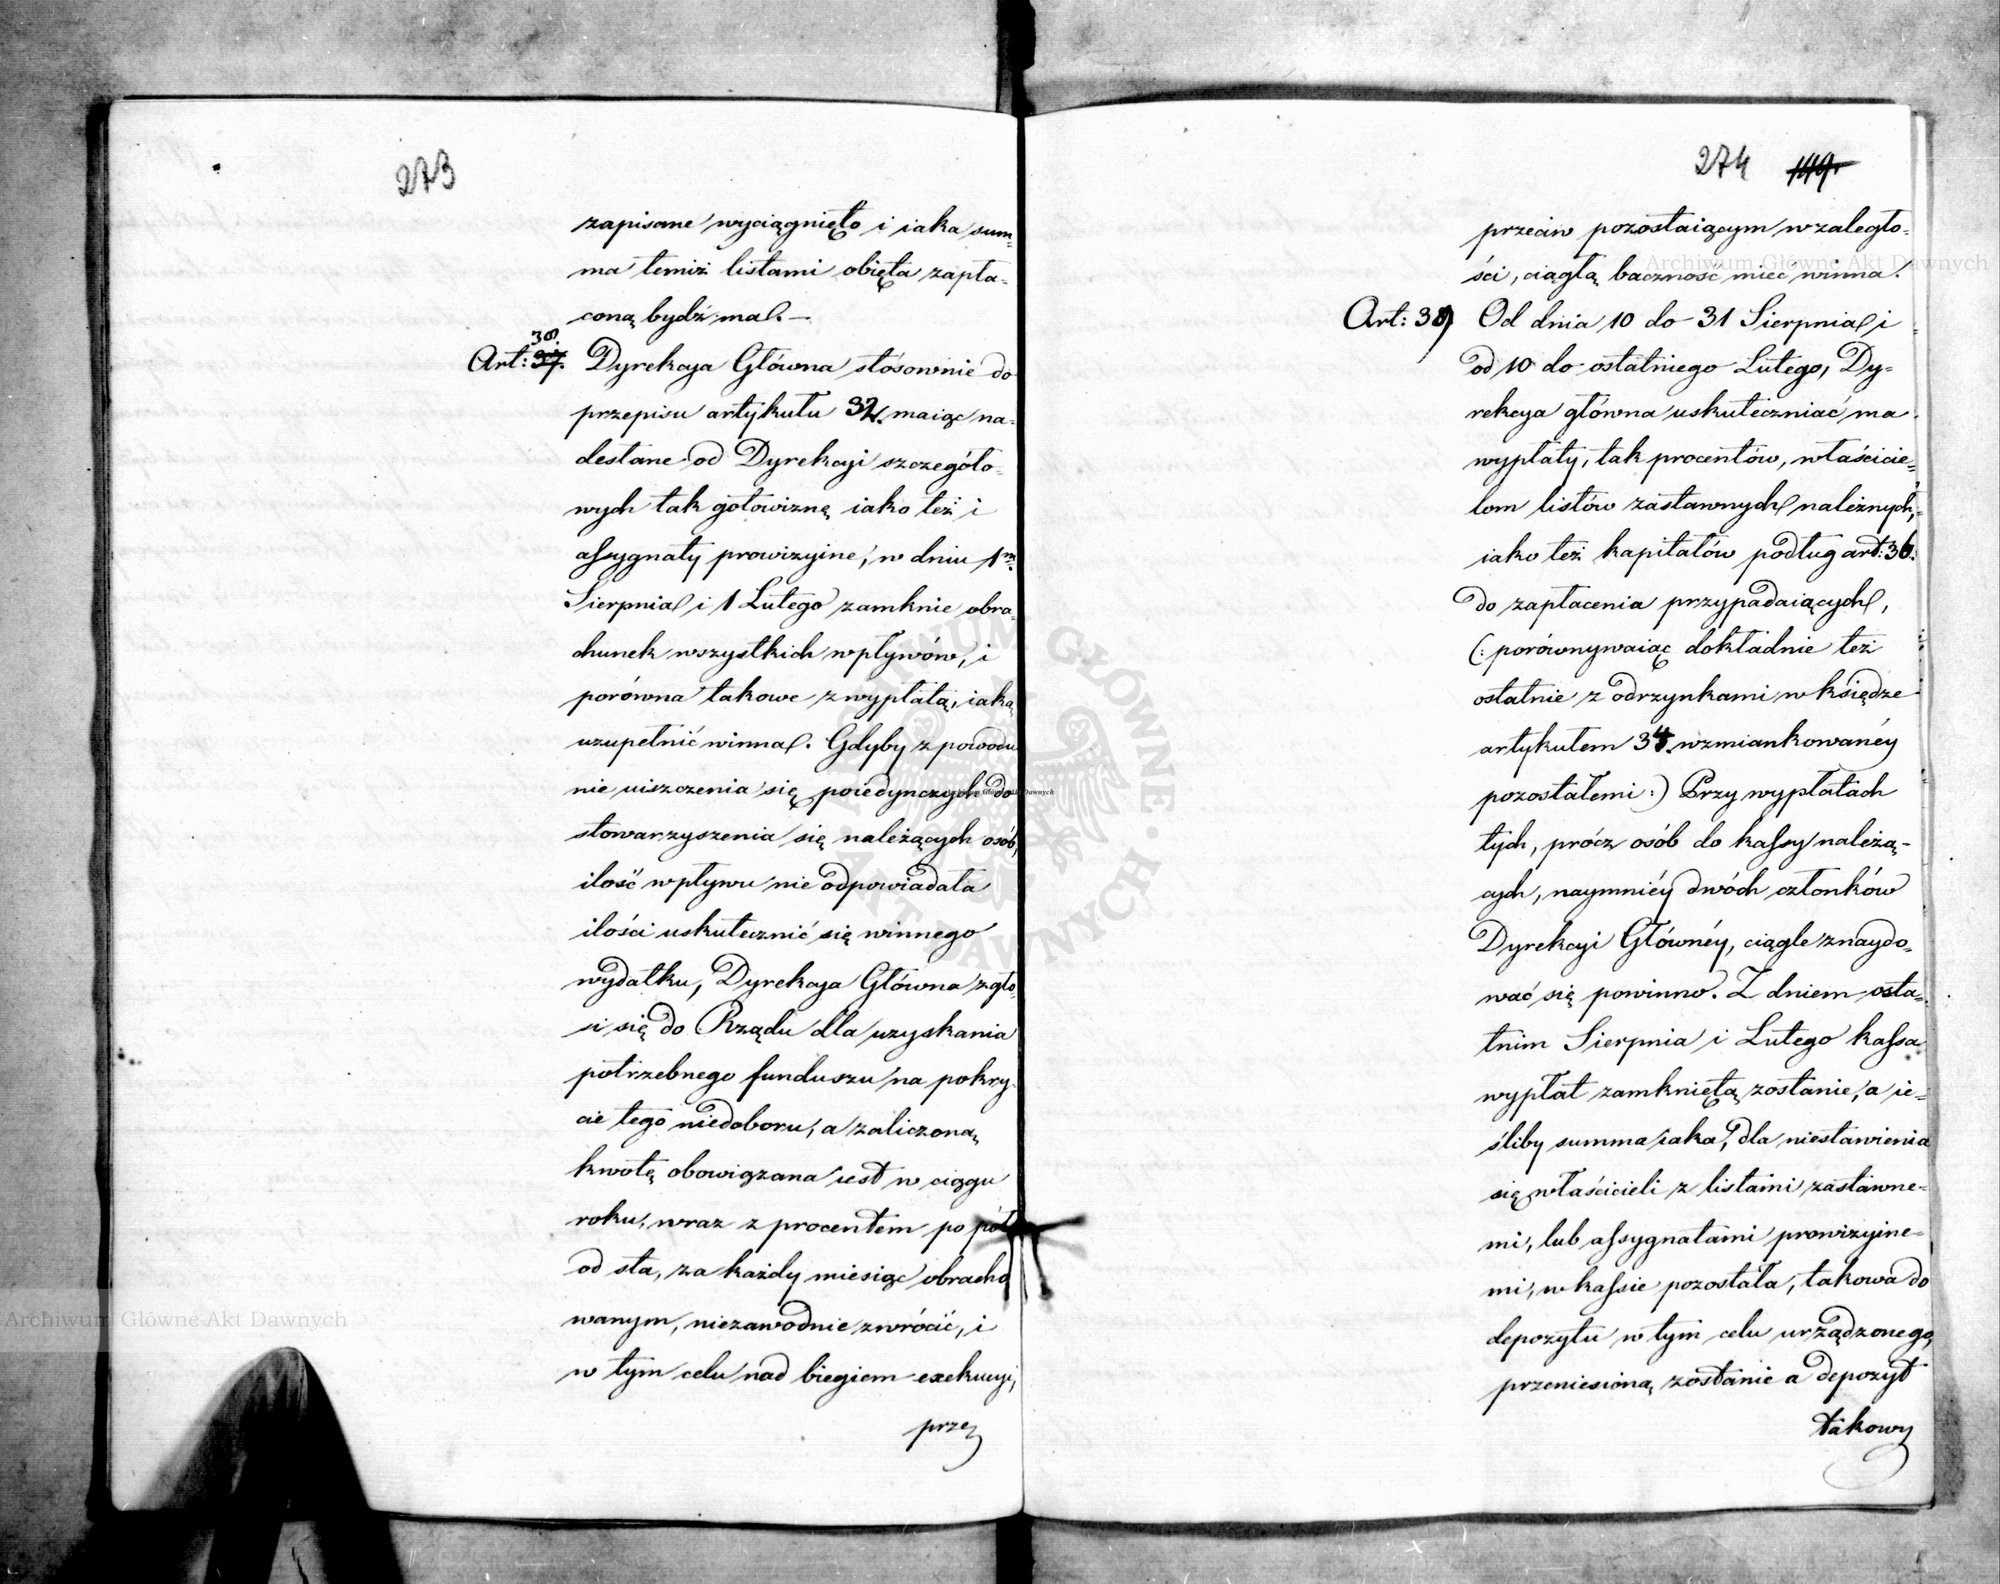 273
zapisane wyciągnięto i iaka sum-
ma temiż listami obięta zapła-
coną bydź ma. —
38.
Art: 37. Dyrekcya Główna stósownie do
przepisu artykułu 32. maiąc na-
desłane od Dyrekcyi szczegóło-
wych tak gotowiznę iako też i
assygnaty prowizyine, w dniu 1m.
Sierpnia i 1 Lutego zamknie obra-
chunek wszystkich wpływów, i
porówna takowe z wypłatą, iaką
uzupełnić winna. Gdyby z powodu
nie uiszczenia się poiedynczych do
stowarzyszenia się należących osób,
ilość wpływu nie odpowiadała
ilości uskutecznić się winnego
wydatku, Dyrekcya Główna zgło-
si się do Rządu dla uzyskania
potrzebnego funduszu na pokry-
cie tego niedoboru, a zaliczoną
kwotę obowiązana iest w ciągu
roku, wraz z procentem po pół
od sta, za każdy miesiąc obracho
wanym, niezawodnie zwrócić, i
w tym celu nad biegiem exekucyi,
prze
274 149.
przeciw pozostaiącym w zaległo-
ści, ciągłą baczność mieć winna.
Art: 39 Od dnia 10 do 31 Sierpnia i
od 10 do ostatniego Lutego, Dy-
rekcya główna uskuteczniać ma
wypłaty, tak procentów, właścicie-
lom listów zastawnych należnych,
iako też kapitałów podług art: 36.
do zapłacenia przypadaiących,
(: porównywaiąc dokładnie też
ostatnie z odrzynkami w księdze
artykułem 34. wzmiankowanéy
pozostałemi :) Przy wypłatach
tych, prócz osób do kassy należą-
cych, naymniéy dwóch członków
Dyrekcyi Głównéy, ciągle znaydo-
wać się powinno. Z dniem osta-
tnim Sierpnia i Lutego kassa
wypłat zamkniętą zostanie, a ie-
śliby summa iaka, dla niestawienia
się właścicieli z listami zastawne-
mi, lub assygnatami prowizyine-
mi, w kassie pozostała, takowa do
depozytu w tym celu urządzonego,
przeniesioną zostanie a depozyt
takowy
Archiwum Główne Akt Dawnych
Archiwum Główne Akt Dawnych
Archiwum Główne Akt Dawnych
ARCHIWUM GŁÓWNE AKT DAWNYCH